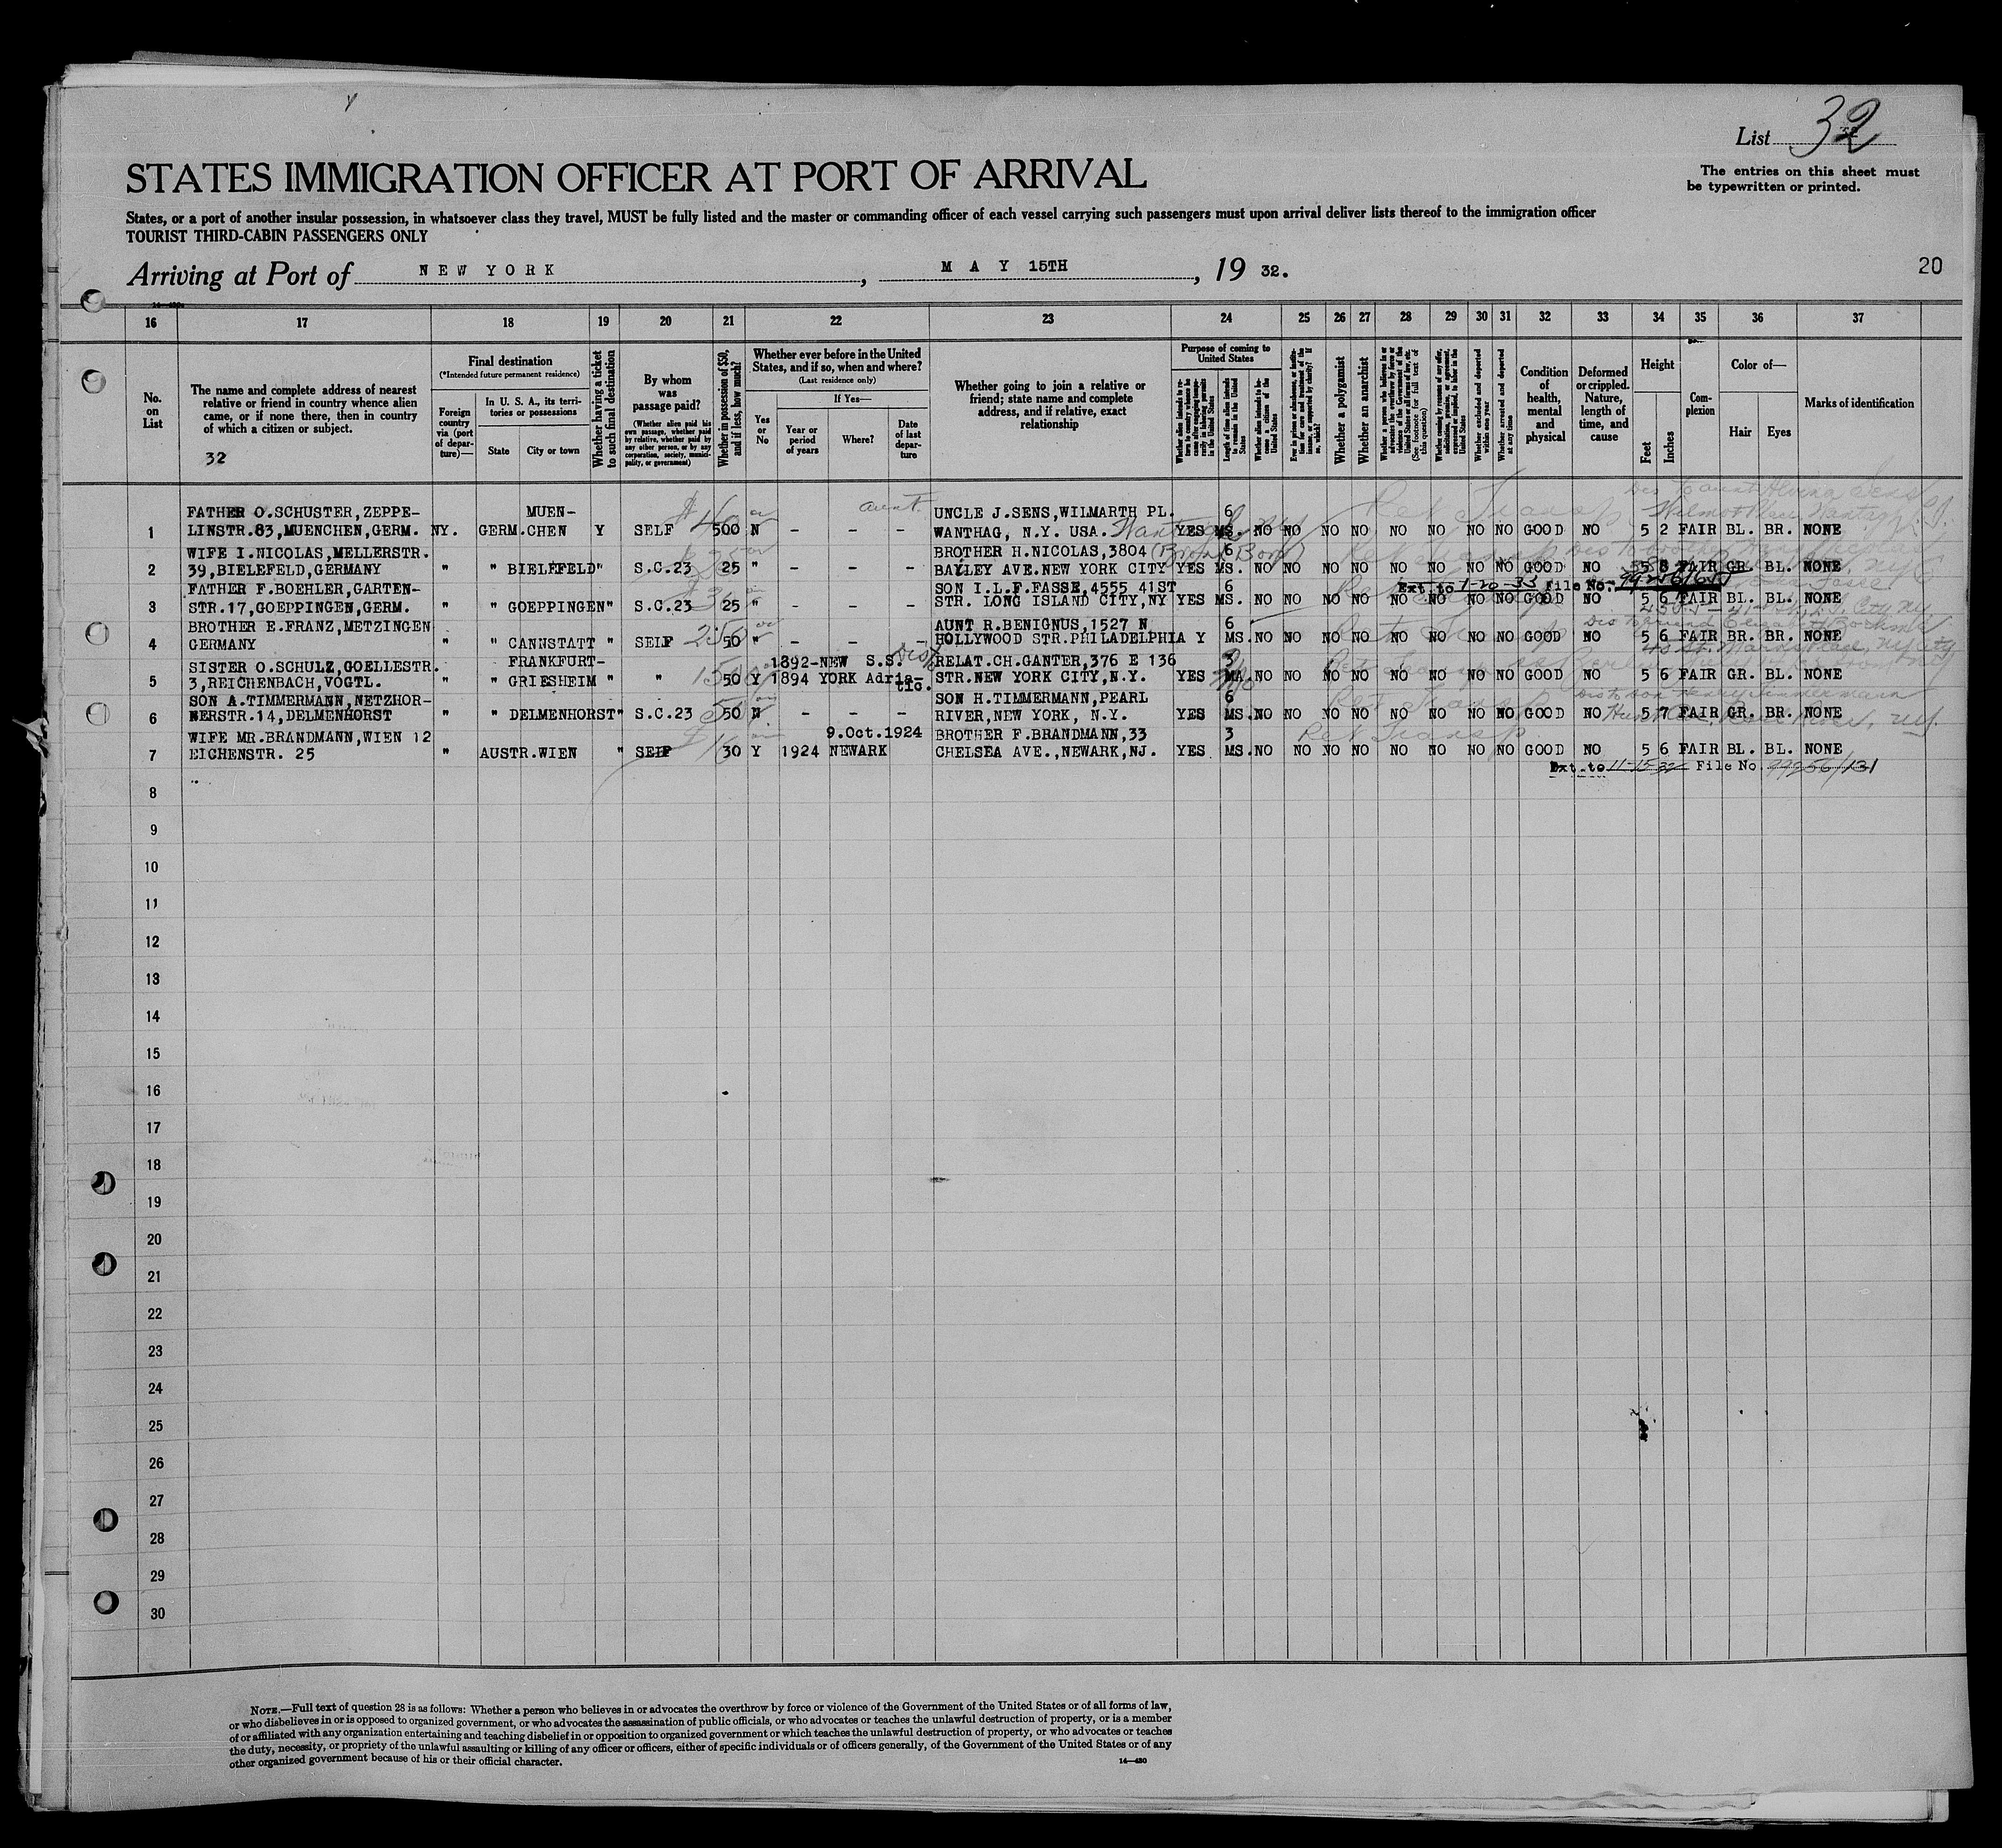 List 32
STATES IMMIGRATION OFFICER AT PORT OF ARRIVAL
The entries on this sheet must
be typewritten or printed.
States, or a port of another insular possession, in whatsoever class they travel, MUST be fully listed and the master or commanding officer of each vessel carrying such passengers must upon arrival deliver lists thereof to the immigration officer
TOURIST THIRD-CABIN PASSENGERS ONLY
Arriving at Port of NEW YORK, MAY 15TH, 19 32.
20
16 17 18 19 20 21 22 23 24 25 26 27 28 29 30 31 32 33 34 35 36 37
No.
on
List
The name and complete address of nearest
relative or friend in country whence alien
came, or if none there, then in country
of which a citizen or subject.
32
Final destination
(*Intended future permanent residence)
Foreign
country
via (port
of depar-
ture)—
In U. S. A., its terri-
tories or possessions
State
City or town
Whether having a ticket
to such final destination
By whom
was
passage paid?
(Whether alien paid his
own passage, whether paid
by relative, whether paid by
any other person, or by any
corporation, society, munici-
pality, or government)
Whether in possession of $50,
and if less, how much?
Whether ever before in the United
States, and if so, when and where?
(Last residence only)
Yes
or
No
If Yes—
Year or
period
of years
Where?
Date
of last
depar-
ture
Whether going to join a relative or
friend; state name and complete
address, and if relative, exact
relationship
Purpose of coming to
United States
Length of time alien intends
to remain in the United
States
Whether alien intends to be-
come a citizen of the
United States
Whether a polygamist
Whether an anarchist
Condition
of
health,
mental
and
physical
Deformed
or crippled.
Nature,
length of
time, and
cause
Height
Feet
Inches
Com-
plexion
Color of—
Hair
Eyes
Marks of identification
FATHER O.SCHUSTER,ZEPPE- MUEN- aunt. UNCLE J.SENS,WILMARTH PL. 6
1 LINSTR.83,MUENCHEN,GERM. NY. GERM.CHEN Y SELF 500 N - - - WANTHAG, N.Y. USA. YES MS. NO NO NO NO NO NO NO NO GOOD NO 5 2 FAIR BL. BR. NONE
WIFE I.NICOLAS,MELLERSTR. BROTHER H.NICOLAS,3804 6
2 39,BIELEFELD,GERMANY " " BIELEFELD" S.C.23 25 " - - - BAYLEY AVE.NEW YORK CITY YES MS. NO NO NO NO NO NO NO NO GOOD NO 5 8 FAIR GR. BL. NONE
FATHER F.BOEHLER,GARTEN- SON I.L.F.FASSE,4555 41ST 6 Ext. to 1-20-33 File No.
3 STR.17,GOEPPINGEN,GERM. " " GOEPPINGEN" S.C.23 25 " - - - STR. LONG ISLAND CITY,NY YES MS. NO NO NO NO NO NO NO NO GOOD NO 5 6 FAIR BL. BL. NONE
BROTHER E.FRANZ,METZINGEN AUNT R.BENIGNUS,1527 N 6
4 GERMANY " " CANNSTATT " SELF 50 " - - - HOLLYWOOD STR.PHILADELPHIA Y MS. NO NO NO NO NO NO NO NO GOOD NO 5 6 FAIR BR. BR. NONE
SISTER O.SCHULZ,GOELLESTR. FRANKFURT- 1892-NEW S.S. RELAT.CH.GANTER,376 E 136 3
5 3,REICHENBACH,VOGTL. " " GRIESHEIM " " 50 Y 1894 YORK Adria- STR.NEW YORK CITY,N.Y. YES MA. NO NO NO NO NO NO NO NO GOOD NO 5 6 FAIR GR. BL. NONE
tic.
SON A.TIMMERMANN,NETZHOR- SON H.TIMMERMANN,PEARL 6
6 NERSTR.14,DELMENHORST " " DELMENHORST" S.C.23 50 N - - - RIVER,NEW YORK, N.Y. YES MS. NO NO NO NO NO NO NO NO GOOD NO 5 7 FAIR GR. BR. NONE
WIFE MR.BRANDMANN,WIEN 12 9.Oct.1924 BROTHER F.BRANDMANN,33 3 Ret Transp
7 EICHENSTR. 25 " AUSTR.WIEN " SELF 30 Y 1924 NEWARK CHELSEA AVE.,NEWARK,NJ. YES MS. NO NO NO NO NO NO NO NO GOOD NO 5 6 FAIR BL. BL. NONE
Ext. to 11-15-32 File No. 99256/131
8
9
10
11
12
13
14
15
16
17
18
19
20
21
22
23
24
25
26
27
28
29
30
NOTE.—Full text of question 28 is as follows: Whether a person who believes in or advocates the overthrow by force or violence of the Government of the United States or of all forms of law,
or who disbelieves in or is opposed to organized government, or who advocates the assassination of public officials, or who advocates or teaches the unlawful destruction of property, or is a member
of or affiliated with any organization entertaining and teaching disbelief in or opposition to organized government or which teaches the unlawful destruction of property, or who advocates or teaches
the duty, necessity, or propriety of the unlawful assaulting or killing of any officer or officers, either of specific individuals or of officers generally, of the Government of the United States or of any
other organized government because of his or their official character.
14—430